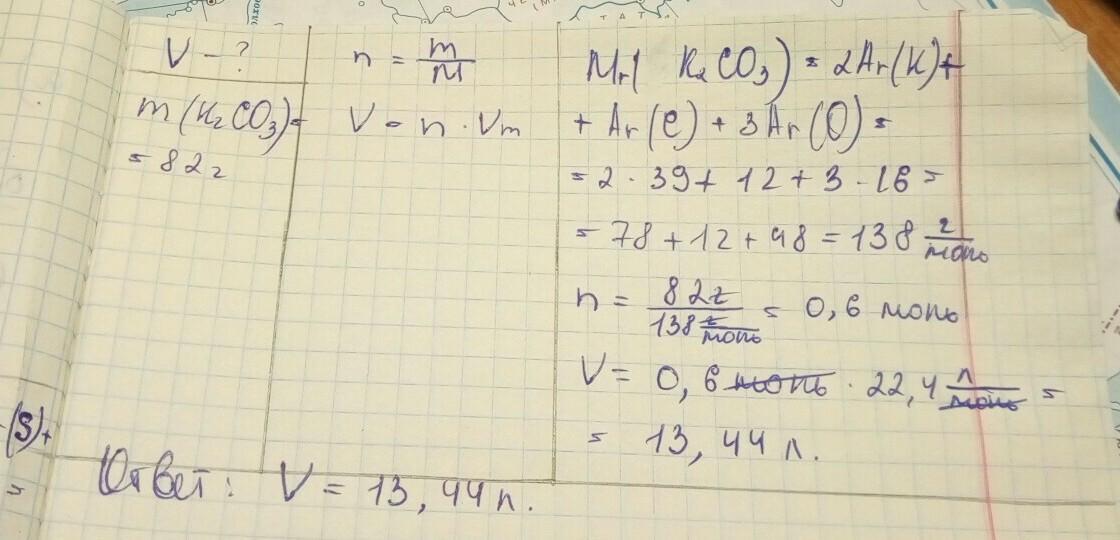 V - ?
m (K₂CO₃) =
= 82 г
n = m/M
V = n · Vm
Mr( K₂CO₃) = 2Ar(K)+
+ Ar(C) + 3Ar(O) =
= 2 · 39 + 12 + 3 · 16 =
= 78 + 12 + 48 = 138 г/моль
n = 82г/138 г/моль = 0,6 моль
V = 0,6 моль · 22,4 л/моль =
= 13,44 л.
Ответ: V = 13,44 л.
(S)+
=
ТАТ